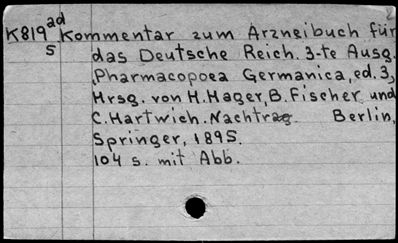 K819ad Kommentar zum Arzneibuch für
s das Deutsche Reich. 3-te Ausg.
Pharmacopoea Germanica, ed. 3,
Hrsg. von H. Hager, B. Fischer und
C. Hartwich. Nachtrag. Berlin,
Springer, 1895.
104 s. mit Abb.